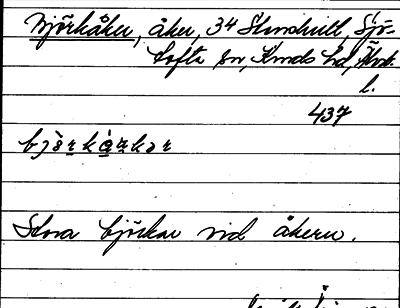 Björkåker, åker, 34 Slondhult, Sjö-
tofta sn, Kinds hd, Älvsb.
l.
437
bjö̀rkǻkər
Stora björkar vid åkern.